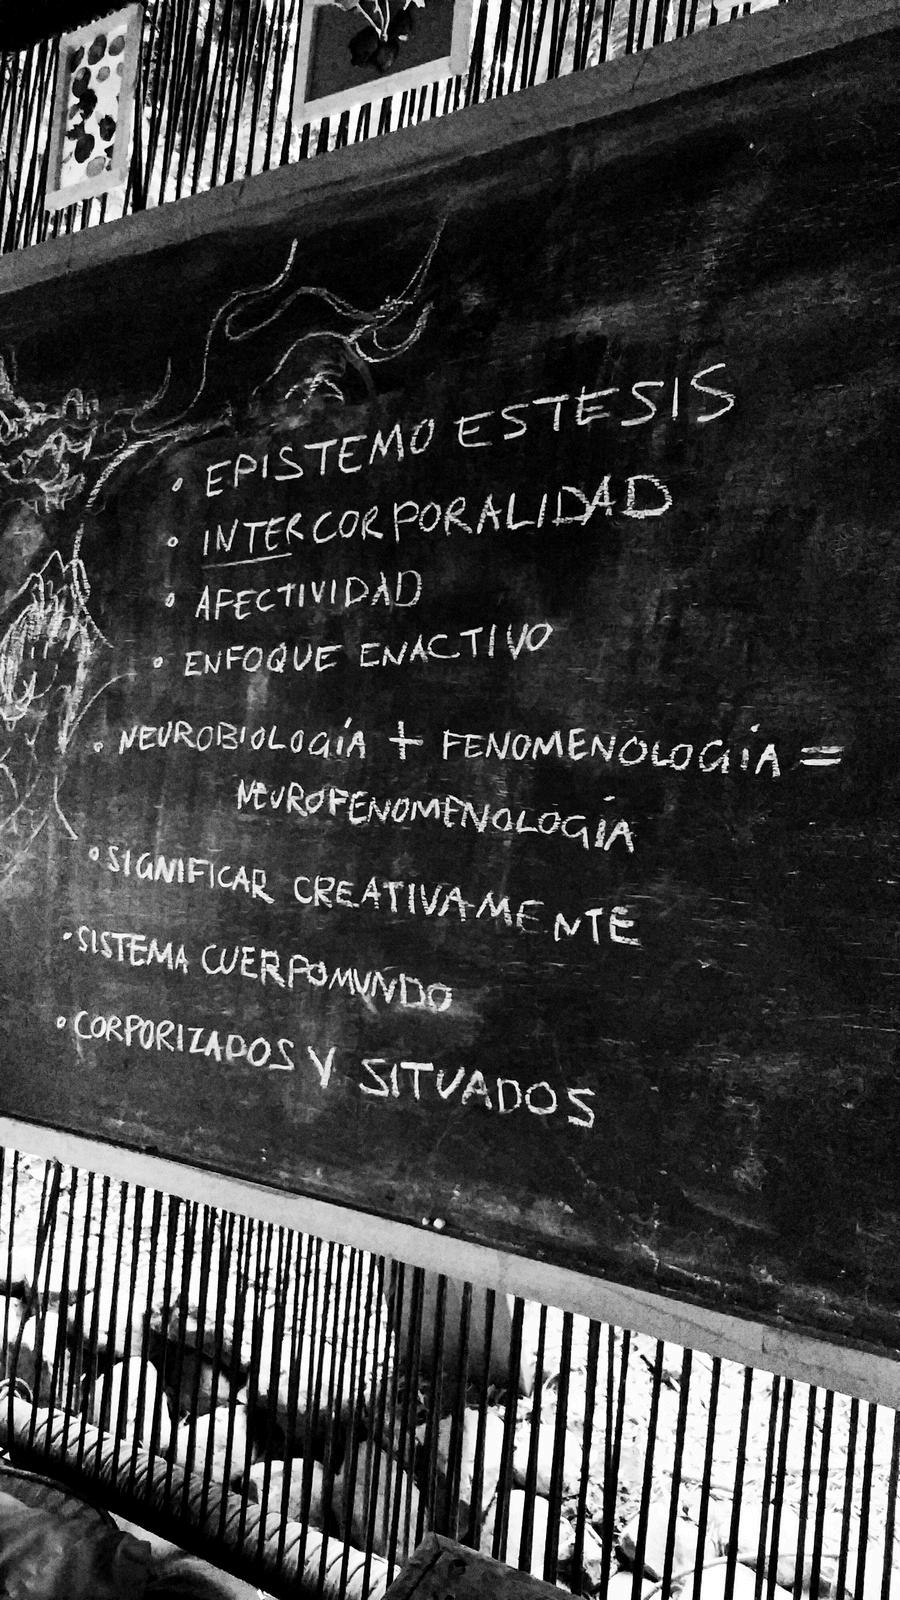 • EPISTEMO ESTESIS
• INTERCORPORALIDAD
• AFECTIVIDAD
• ENFOQUE ENACTIVO
• NEUROBIOLOGÍA + FENOMENOLOGÍA =
NEUROFENOMENOLOGÍA
• SIGNIFICAR CREATIVAMENTE
• SISTEMA CUERPOMUNDO
• CORPORIZADOS Y SITUADOS